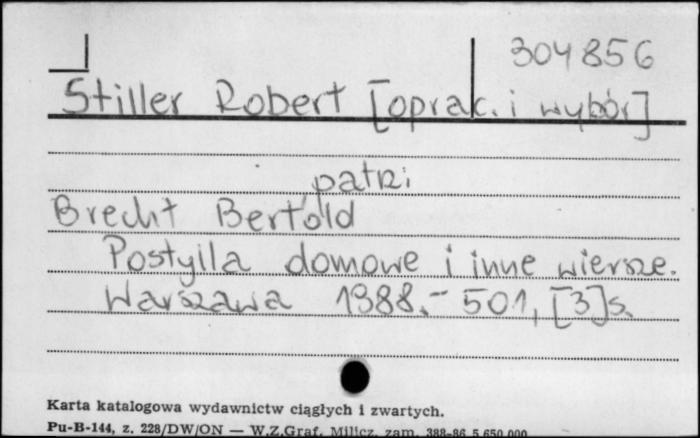 304856
Stiller Robert [oprac. i wybór]
patrz:
Brecht Bertold
Postylla domowe i inne wiersze.
Warszawa 1988. - 501, [3]s.
Karta katalogowa wydawnictw ciągłych i zwartych.
Pu-B-144, z. 228/DW/ON — W.Z.Graf. Milicz, zam. 388-86 5 650 000